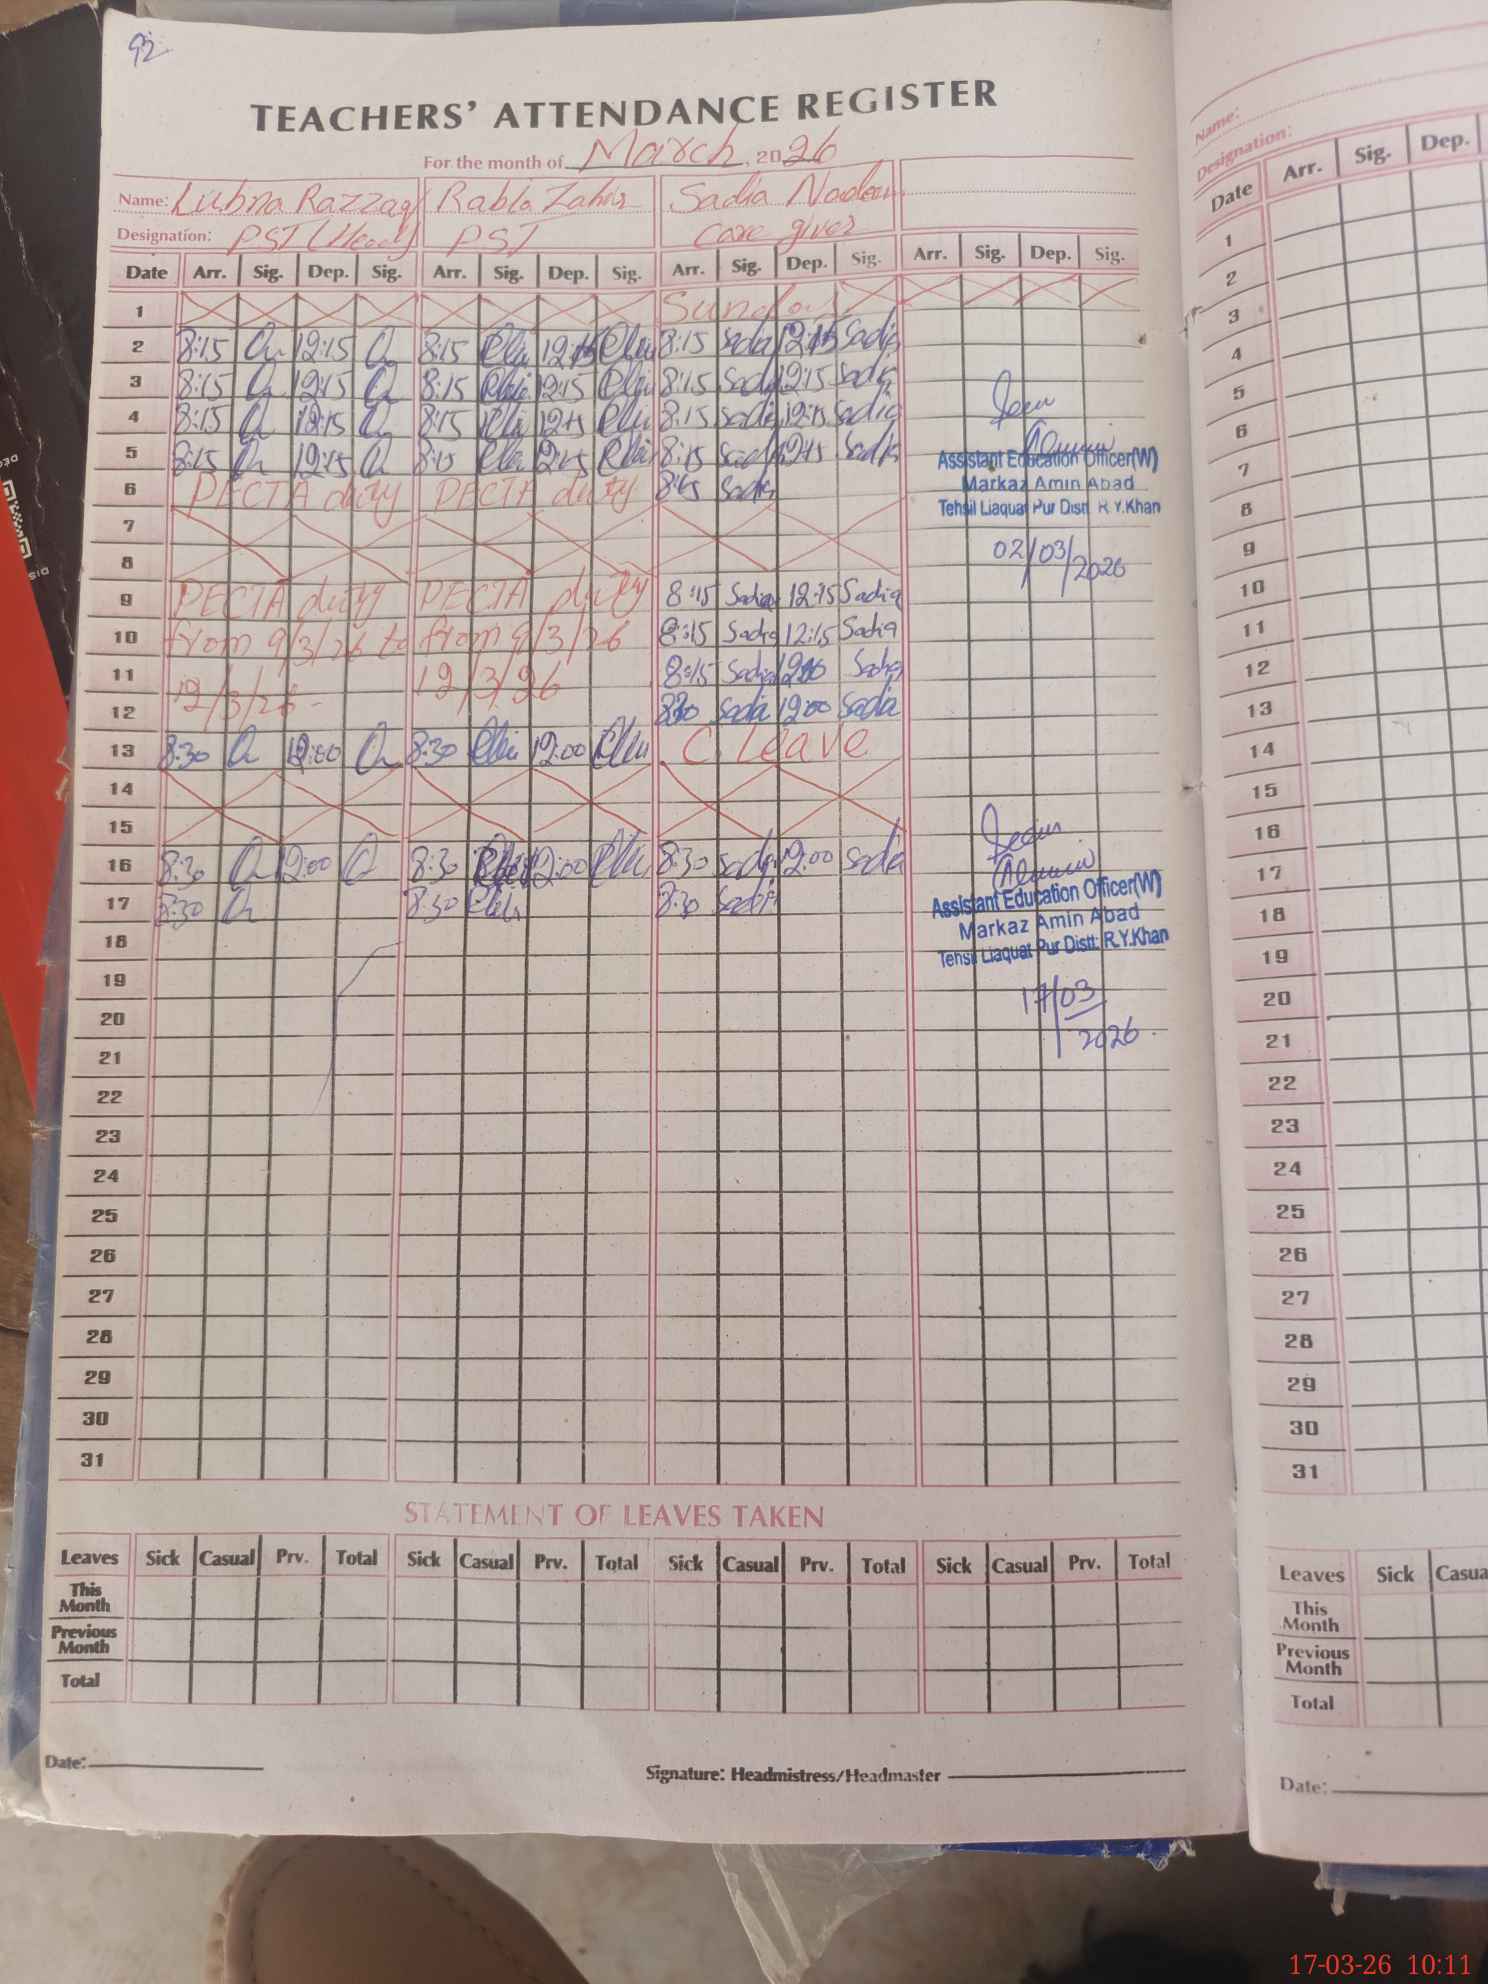 92
TEACHERS' ATTENDANCE REGISTER
For the month of March, 2026
Name: Lubna Razzaq Rabia Zahir Sadia Nadeem
Designation: PST (Head) PST Care giver
Date Arr. Sig. Dep. Sig. Arr. Sig. Dep. Sig. Arr. Sig. Dep. Sig. Arr. Sig. Dep. Sig.
1 Sunday
2 8:15 12:15 8:15 12:15 8:15 Sadia 12:15 Sadia
3 8:15 12:15 8:15 12:15 8:15 Sadia 12:15 Sadia
4 8:15 12:15 8:15 12:15 8:15 Sadia 12:15 Sadia
5 8:15 12:15 8:15 12:15 8:15 Sadia 12:15 Sadia
Assistant Education Officer(W)
6 PECTA duty PECTA duty 8:15 Sadia
Markaz Amin Abad
Tehsil Liaquat Pur Distt R.Y.Khan
7
02/03/2026
8
9 PECTA duty PECTA duty 8:15 Sadia 12:15 Sadia
10 from 9/3/26 to from 9/3/26 8:15 Sadia 12:15 Sadia
11 12/3/26- 12/3/26 8:15 Sadia Sadia
12 8:30 Sadia 12:00 Sadia
13 8:30 12:00 8:30 12:00 C. Leave
14
15
16 8:30 12:00 8:30 12:00 8:30 Sadia 12:00 Sadia
17 8:30 8:30 8:30 Sadia
Assistant Education Officer(W)
Markaz Amin Abad
Tehsil Liaquat Pur Distt: R.Y.Khan
18
19
17/03/2026.
20
21
22
23
24
25
26
27
28
29
30
31
STATEMENT OF LEAVES TAKEN
Leaves Sick Casual Prv. Total Sick Casual Prv. Total Sick Casual Prv. Total Sick Casual Prv. Total
This Month
Previous Month
Total
Date:
Signature: Headmistress/Headmaster
Name:
Designation:
Date Arr. Sig. Dep.
1
2
3
4
5
6
7
8
9
10
11
12
13
14
15
16
17
18
19
20
21
22
23
24
25
26
27
28
29
30
31
Leaves Sick Casua
This Month
Previous Month
Total
Date:
17-03-26 10:11